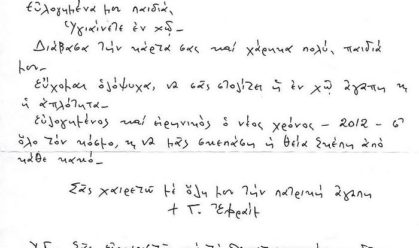 Εὐλογημένα μου παιδιά,
Ὑγιαίνετε ἐν Χῷ –
Διάβασα τήν κάρτα σας καί χάρηκα πολύ, παιδιά
μου –
Εὔχομαι ὁλόψυχα, νά σᾶς στολίζει ἡ ἐν Χῷ ἀγάπη κ
ἡ ἁπλότητα –
Εὐλογημένος καί εἰρηνικός ὁ νέος χρόνος – 2012 – σ'
ὅλο τόν κόσμο, κ νά μᾶς σκεπάσῃ ἡ θεία Σκέπη ἀπό
κάθε κακό –
Σᾶς χαιρετῶ μέ ὅλη μου τήν πατρική ἀγάπη
+ Γ. Ἐφραίμ